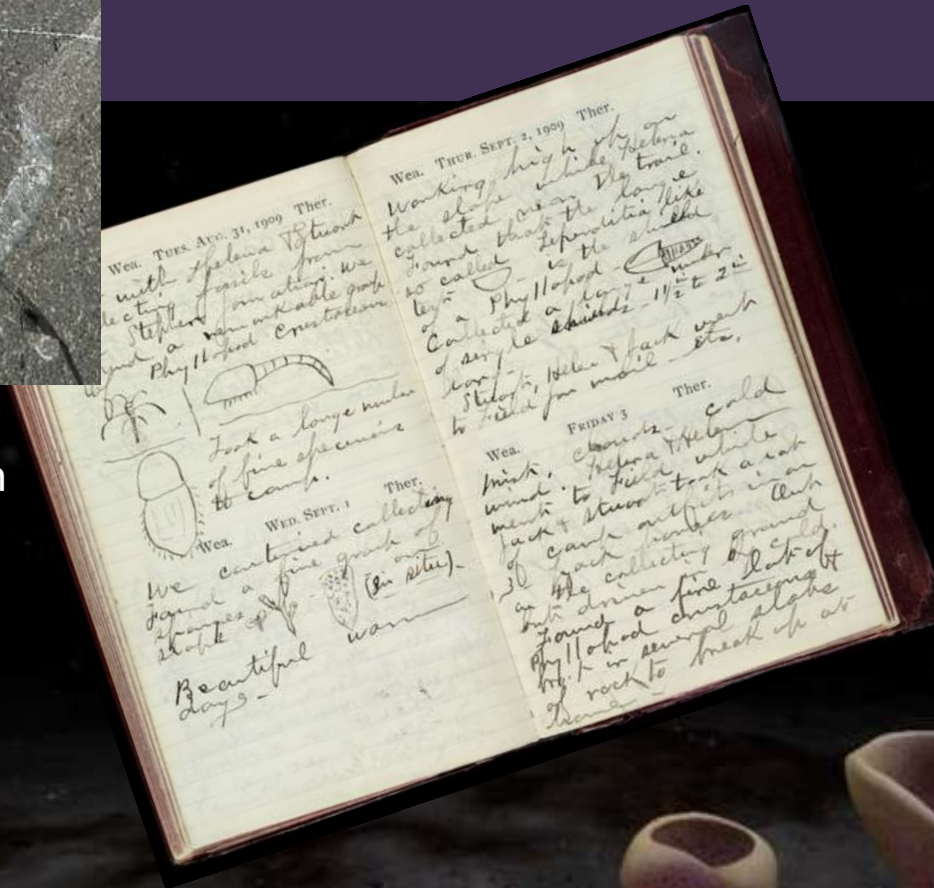 Wea. TUES. AUG. 31, 1909 Ther.
with Helena & Stuart
ecting fossils from
Stephen formation. We
a remarkable group
Phyllopod Crustaceans
Took a large number
of fine specimens
to camp.
Wea. WED. SEPT. 1 Ther.
We continued collecting
Found a fine group of
sponges on
(in situ) -
Beautiful warm
days -
Wea. THUR. SEPT. 2, 1909 Ther.
Working high up on
the slope while Helena
collected near the trail.
Found that the large
so called Leperditia like
test is the shield
of a Phyllopod -
Collected a large number
of single 1 1/2 to 2 in
long -
Stuart, Helen & Jack went
to Field for mail - etc,
Wea. FRIDAY 3 Ther.
Mist, clouds - cold
wind. Helena & Helen
went to Field while
Jack & Stuart took a
of camp outfits
pack horses. Out
on the collecting ground
but driven in by cold.
Found a fine lot of
Phyllopod crustaceans &
in several slabs
of rock to break up at
home -
n